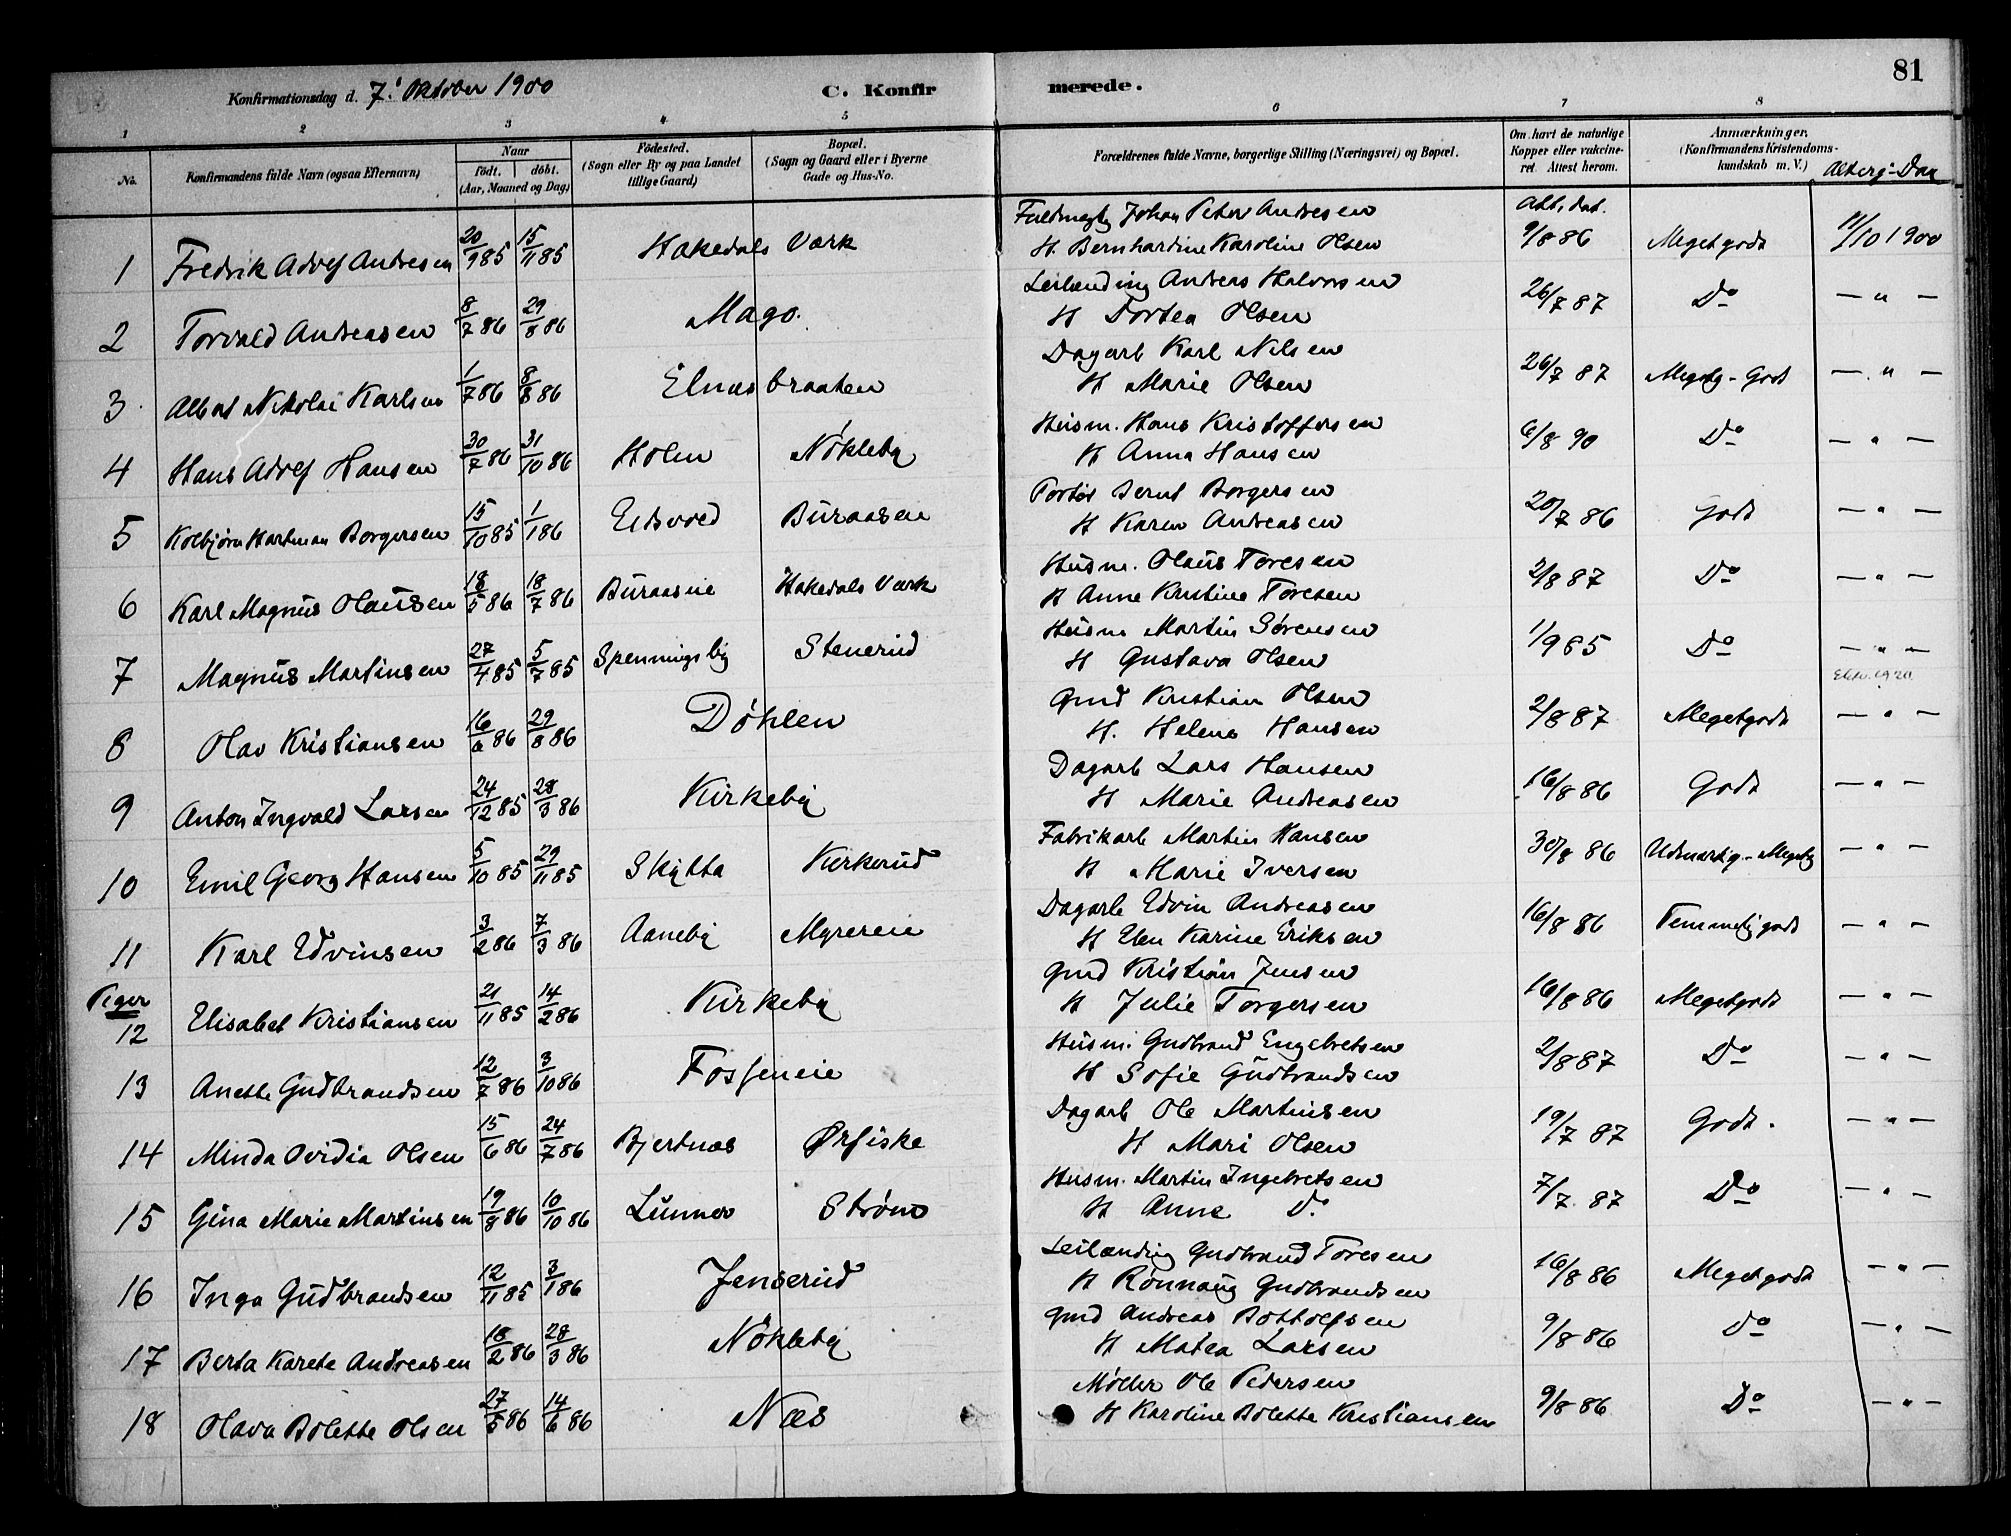 81
Konfirmationsdag d. 7. Oktober 1900 C. Konfirmerede.
1 2 3 4 5 6 7 8
No. Konfirmandens fulde Navn (ogsaa Efternavn) Naar födt. döbt. (Aar, Maaned og Dag) Födested. (Sogn eller By og paa Landet tillige Gaard) Bopæl. (Sogn og Gaard eller i Byerne Gade og Hus-No. Forældrenes fulde Navne, borgerlige Stilling (Næringsvei) og Bopæl. Om havt de naturlige Kopper eller vakcineret. Attest herom. Anmærkninger. (Konfirmandens Kristendomskundskab m. V.) Altergj-Dag
Fuldmægtg Johan Peter Andresen Att. dat.
1 Fredrik Adolf Andresen 20/9 85 15/11 85 Hakedals Værk H. Bernhardine Karoline Olsen 9/8 86 Megetgodt 11/10 1900
Leilænding Andreas Halvorsen
2 Torvald Andreasen 8/7 86 29/8 86 Mago. H Dortea Olsen 26/7 87 Do — " —
Dagarb Karl Nilsen
3 Albert Nikolai Karlsen 1/7 86 8/8 86 Elnæsbraaten H Marie Olsen 26/7 87 Megetg-Godt — " —
Husm. Hans Kristoffersen
4 Hans Adolf Hansen 30/7 86 31/10 86 Holm Nökleby H Anna Hansen 6/8 90 Do — " —
Bernt Borgersen
5 Kolbjörn Hartman Borgersen 15/10 85 1/1 86 Eidsvold Buraasen H Karen Andreasen 20/7 86 Godt — " —
Husm. Olaus Toresen
6 Karl Magnus Olausen 18/5 86 18/7 86 Buraaseie Hakedals Værk H Anne Kristine Toresen 2/8 87 Do — " —
Husm Martin Sörensen
7 Magnus Martinsen 27/4 85 5/7 85 Spenningsby Stenerud H Gustava Olsen 1/9 85 Do — " —
Gmd Kristian Olsen
8 Olav Kristiansen 16/6 86 29/8 86 Döhlen H. Helena Hansen 2/8 87 Megetgodt — " —
Dagarb Lars Hansen
9 Anton Ingvald Larsen 24/12 85 28/3 86 Kirkeby H Marie Andreasen 16/8 86 Godt — " —
Fabrikarb Martin Hansen
10 Emil Georg Hansen 5/10 85 29/11 85 Skytta Kirkerud H Marie Iversen 30/8 86 Udmærktg-Megetg — " —
Dagarb Edvin Andreasen
11 Karl Edvinsen 3/2 86 7/3 86 Aaneby Myrereie H Elen Karine Eriksen 16/8 86 Temmeliggodt — " —
Piger Gmd Kristian Jensen
12 Elisabet Kristiansen 21/11 85 14/2 86 Kirkeby H Julie Torgersen 16/8 86 Megetgodt — " —
Husm. Gudbrand Engebretsen
13 Anette Gudbrandsen 12/7 86 3/10 86 Fosseneie H Sofie Gudbrandsen 2/8 87 Do — " —
Dagarb Ole Martinsen
14 Minda Ovidia Olsen 15/6 86 24/7 86 Bjertnæs Ørfiske H Mari Olsen 19/7 87 Godt. — " —
Husm. Martin Ingebretsen
15 Gina Marie Martinsen 19/8 86 10/10 86 Lunner Ström H Anne Do 7/7 87 Do — " —
Leilænding Gudbrand Toresen
16 Inga Gudbrandsen 12/11 85 3/1 86 Jenserud H Rönnaug Gudbrandsen 16/8 86 Megetgodt — " —
Gmd Andreas Bottolfsen
17 Berta Karete Andreasen 18/2 86 28/3 86 Nökleby H Matea Larsen 9/8 86 Do — " —
Möller Ole Pedersen
18 Olava Bolette Olsen 27/5 86 14/6 86 Næs H Karoline Bolette Kristiansen 9/8 86 Do — " —